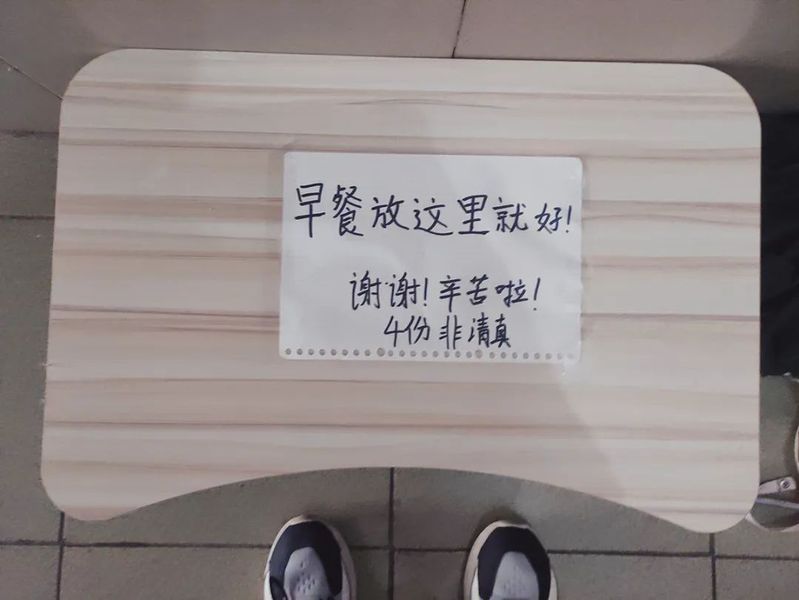 早餐放这里就好!
谢谢!辛苦啦!
4份非清真